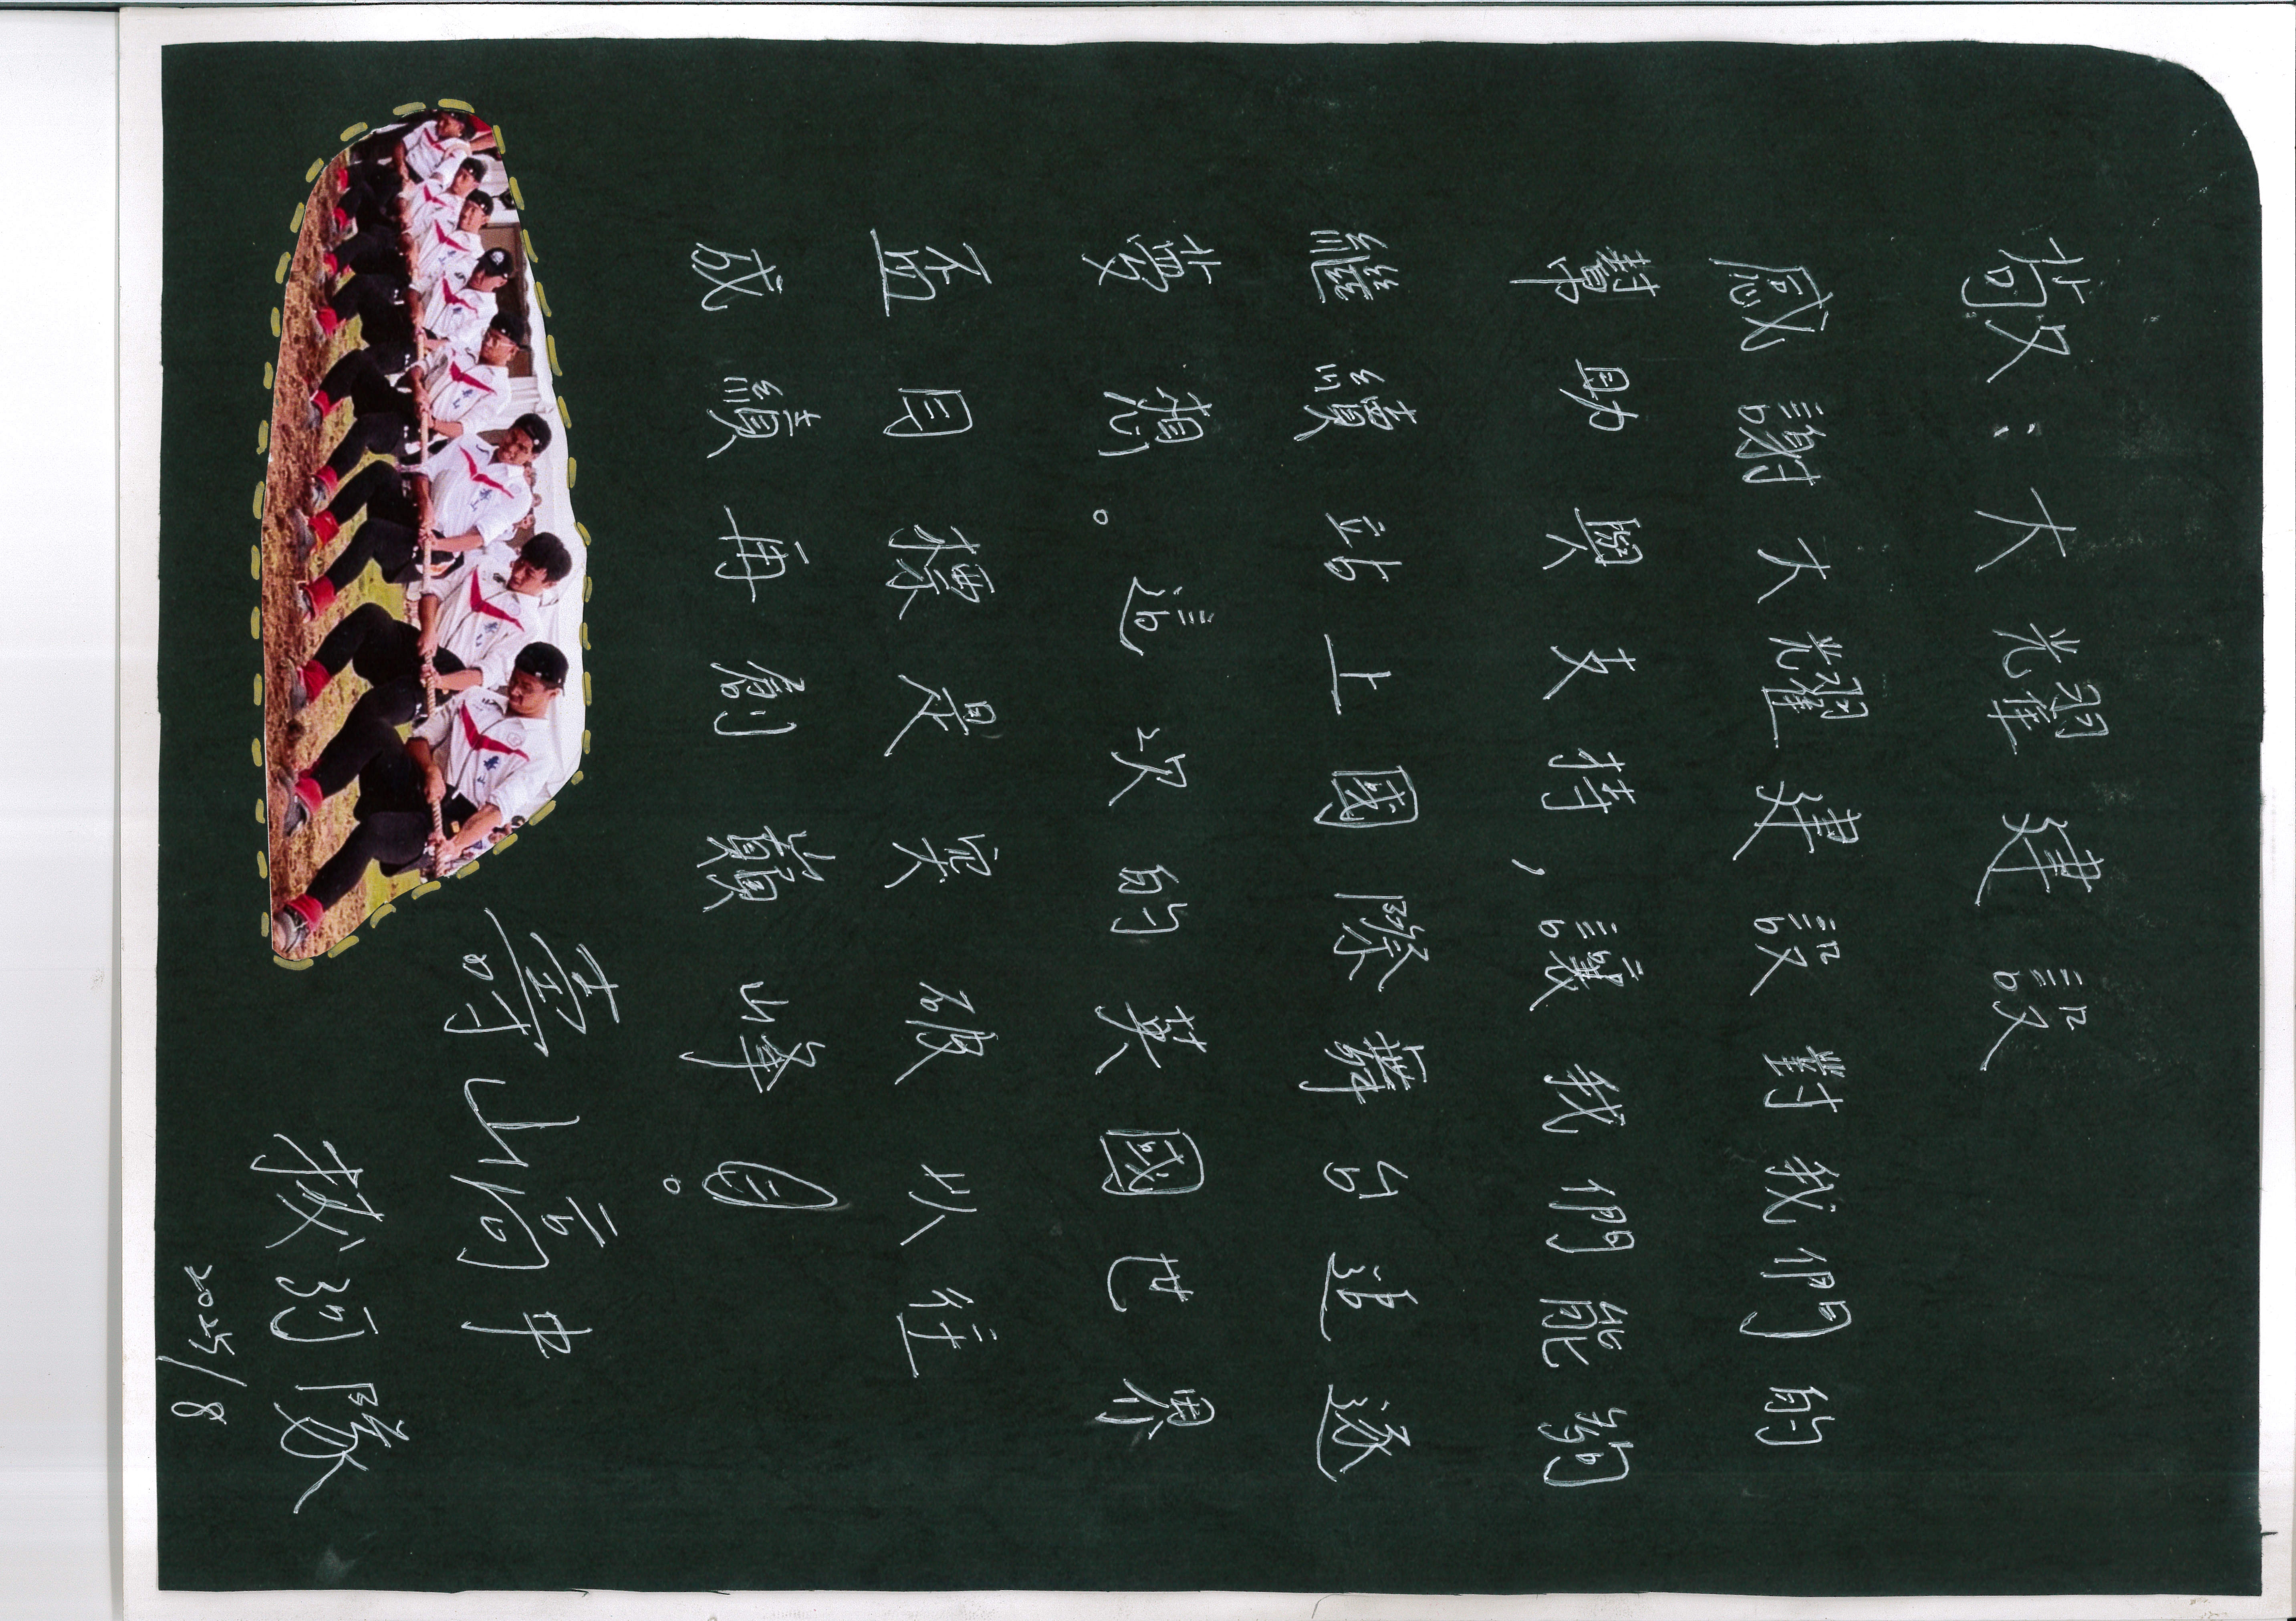 敬：大耀建設
感謝大耀建設對我們的
幫助與支持，讓我們能夠
繼續站上國際舞台追逐
夢想。這次的英國世界
盃目標是突破以往
成績再創巔峰。
壽山高中
拔河隊
2025/8